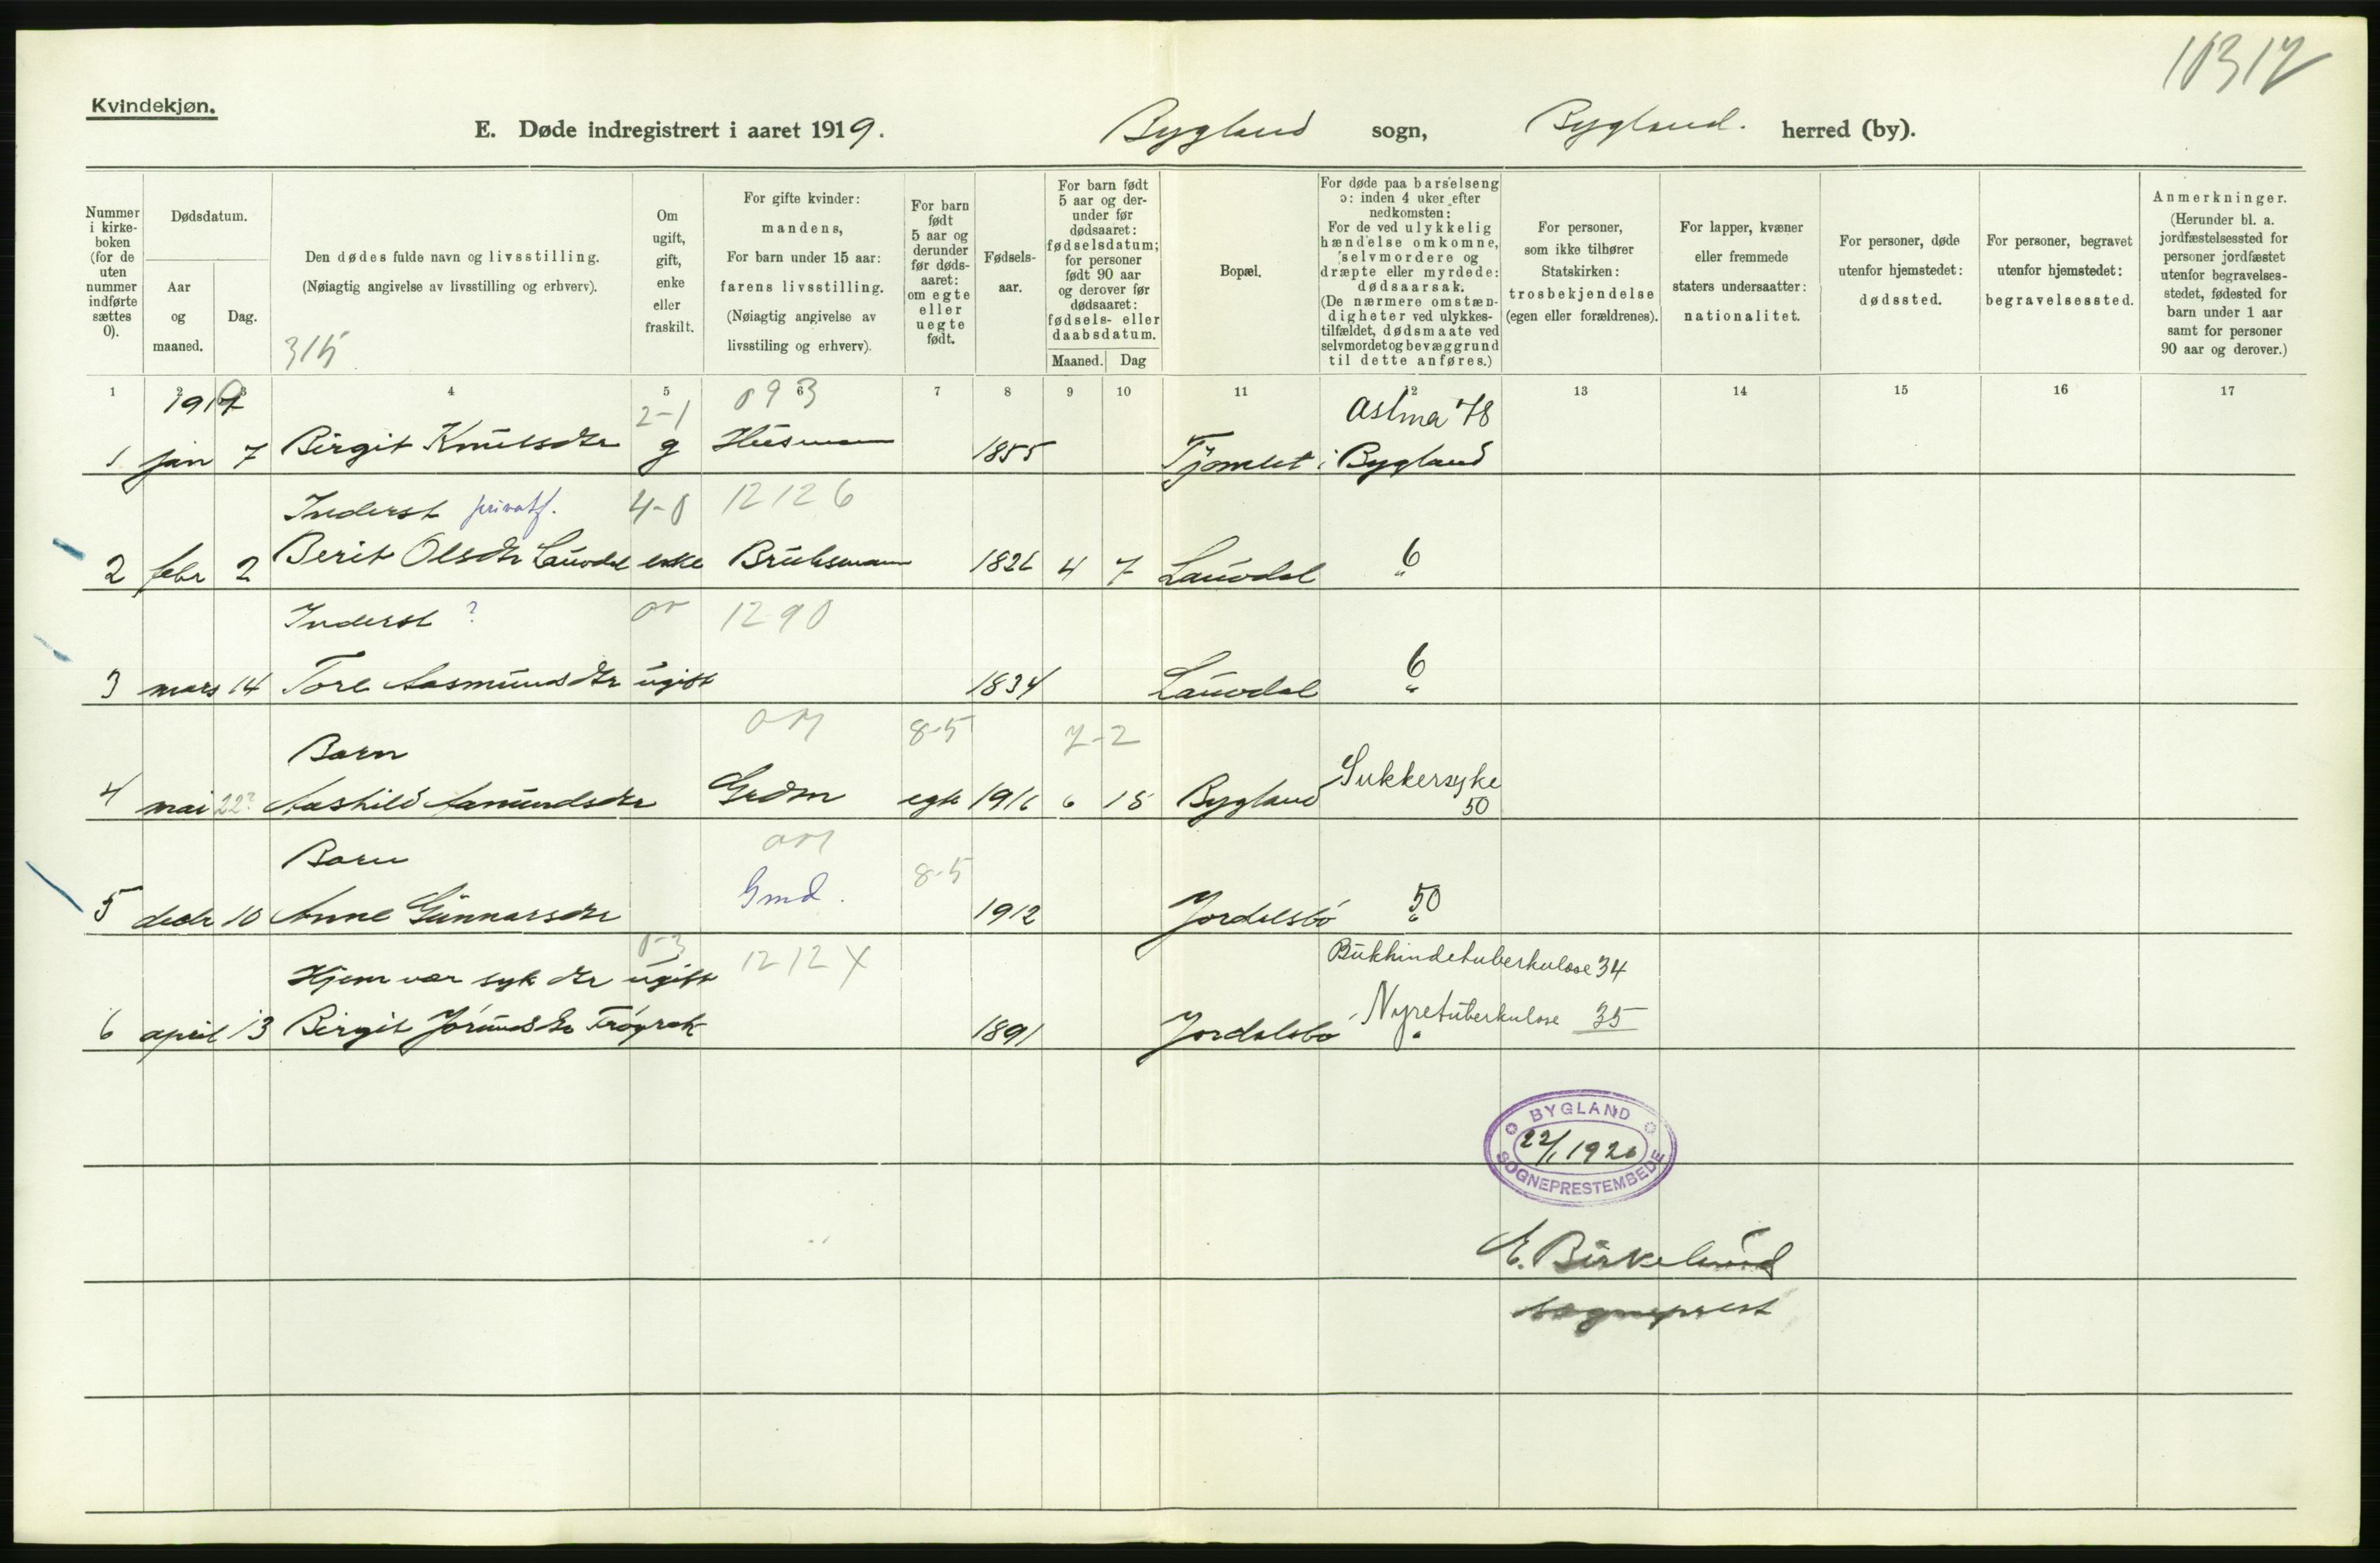 11317
Kvindekjøn.
E. Døde indregistrert i aaret 1919. Bygland sogn, Bygland. herred (by).
Nummer i kirke-boken (for de uten nummer indførte sættes 0).
Dødsdatum.
Aar og maaned.
Dag.
Den dødes fulde navn og livsstilling.
(Nøiagtig angivelse av livsstilling og erhverv).
315
Om ugift, gift, enke eller fraskilt.
For gifte kvinder: mandens,
For barn under 15 aar: farens livsstilling.
(Nøiagtig angivelse av livsstiling og erhverv).
For barn født 5 aar og derunder før døds-aaret: om egte eller uegte født.
Fødsels-aar.
For barn født 5 aar og der-under før dødsaaret: fødselsdatum; for personer født 90 aar og derover før dødsaaret: fødsels- eller daabsdatum.
Maaned. Dag
Bopæl.
For døde paa barselseng ɔ: inden 4 uker efter nedkomsten:
For de ved ulykkelig hændelse omkomne, selvmordere og dræpte eller myrdede: dødsaarsak.
(De nærmere omstæn-digheter ved ulykkes-tilfældet, dødsmaate ved selvmordet og bevæggrund til dette anføres.)
For personer, som ikke tilhører Statskirken: trosbekjendelse (egen eller forældrenes).
For lapper, kvæner eller fremmede staters undersaatter: nationalitet.
For personer, døde utenfor hjemstedet: dødssted.
For personer, begravet utenfor hjemstedet: begravelsessted.
Anmerkninger.
(Herunder bl. a. jordfæstelsessted for personer jordfæstet utenfor begravelses-stedet, fødested for barn under 1 aar samt for personer 90 aar og derover.)
1 2 3 4 5 6 7 8 9 10 11 12 13 14 15 16 17
1919 2-1 093 Astma 78
1 jan 7 Birgit Knutsdtr g Husmann 1855 Tjomlet i Bygland
Inderst privatf. 4-0 12126
2 febr 2 Berit Olsdtr Lauvdal enke Bruksmann 1826 4 7 Lauvdal 6 "
Inderst ? 1290
3 mars 14 Tore Aasmundsdtr ugift 1834 Lauvdal 6 "
Barn 8-5 7-2 Sukkersyke
4 mai 22? Aashild Aamundsdtr Grdm egte 1916 6 15 Bygland 50
Barn Gmd. 8-5
5 decbr 10 Anne Gunnarsdtr 1912 Jordalsbö 50 "
Hjem var syk dtr ugift 0-3 1212 X Bukhindetuberkulose 34
6 april 13 Birgit Jörundsdtr Frøyrak 1891 Jordalsbø " Nyretuberkulose 35
BYGLAND
22/1 1920
SOGNEPRESTEMBEDE
E. Birkelund
sogneprest